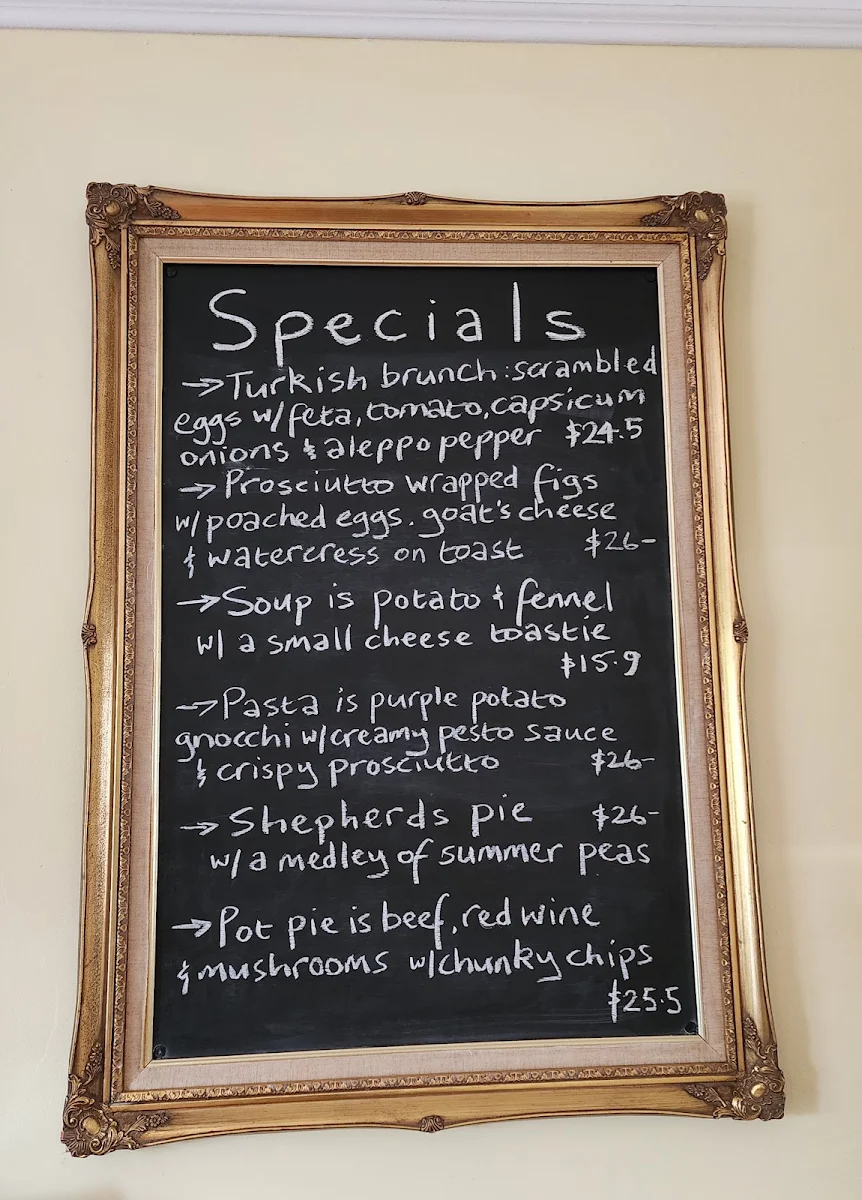 Specials
→Turkish brunch: scrambled
eggs w/feta, tomato, capsicum
onions & aleppo pepper $24.5
→ Prosciutto wrapped figs
w/poached eggs. goat's cheese
& watercress on toast $26-
→Soup is potato & fennel
w/ a small cheese toastie
$15.9
→Pasta is purple potato
gnocchi w/creamy pesto sauce
& crispy prosciutto $26-
→ Shepherds pie $26-
w/a medley of summer peas
→Pot pie is beef, red wine
& mushrooms w/chunky chips
$25.5